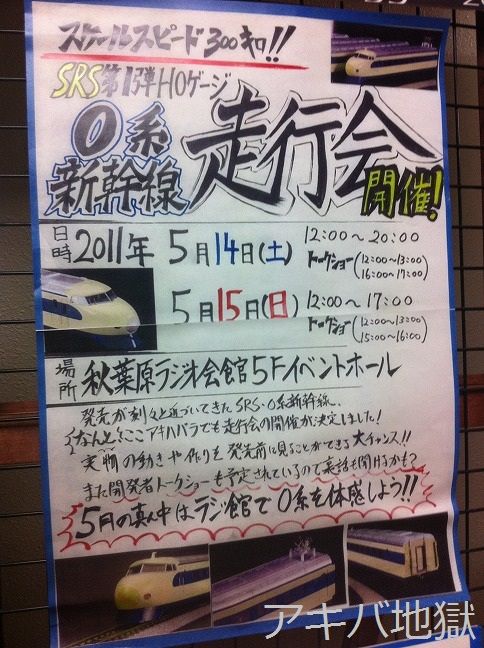 スケールスピード300キロ!!
SRS第1弾HOゲージ
0系
新幹線
走行会
開催!
日時
2011年 5月14日(土) 12:00〜20:00
トークショー(12:00〜13:00
16:00〜17:00)
5月15日(日) 12:00〜17:00
トークショー(12:00〜13:00
15:00〜16:00)
場所
秋葉原ラジオ会館5Fイベントホール
発売が刻々と近づいてきたSRS・0系新幹線、
なんと、ここアキハバラでも走行会の開催が決定しました!
実物の動きや作りを発売前に見ることができる大チャンス!!
また開発者トークショーも予定されているので裏話も聞けるかも?
5月の真ん中はラジ館で0系を体感しよう!!
アキバ地獄